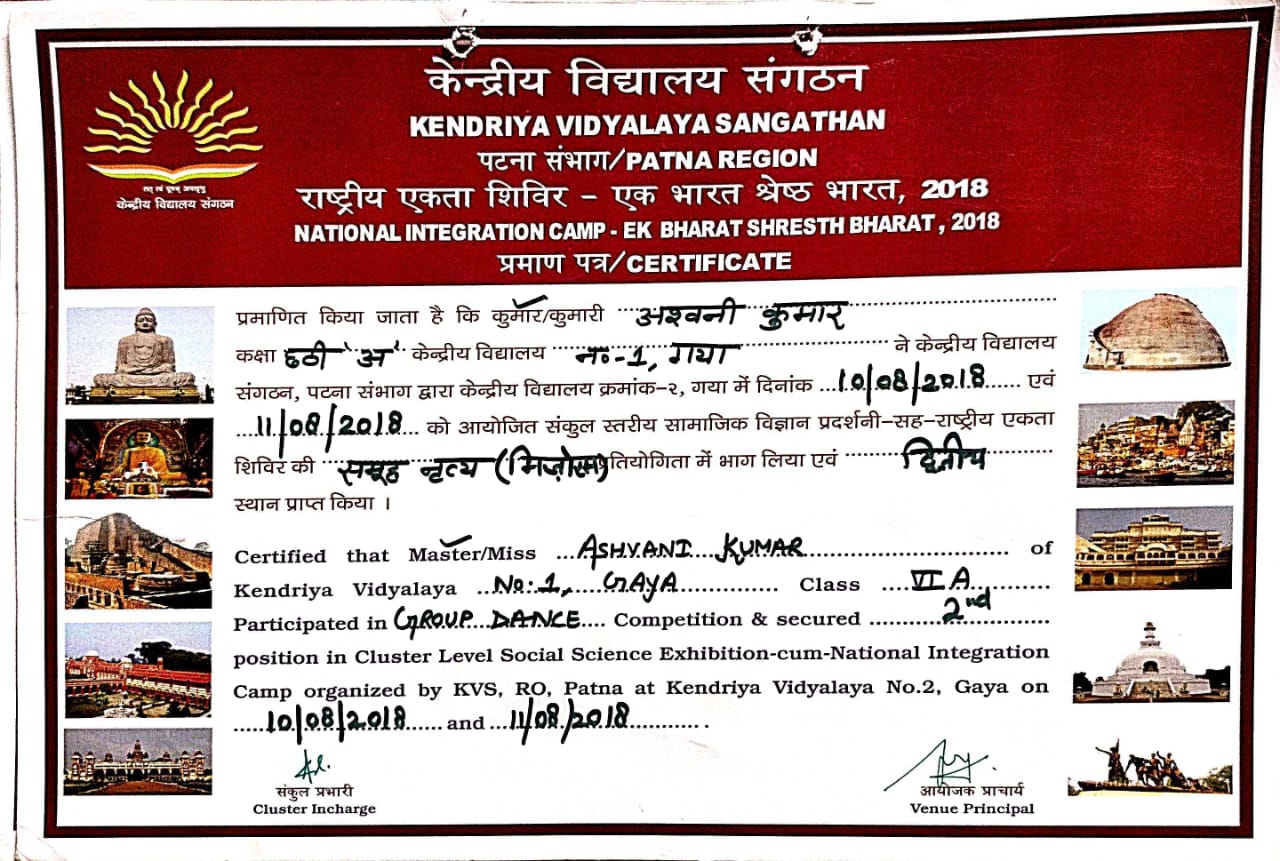 केन्द्रीय विद्यालय संगठन
KENDRIYA VIDYALAYA SANGATHAN
पटना संभाग/PATNA REGION
राष्ट्रीय एकता शिविर – एक भारत श्रेष्ठ भारत, 2018
NATIONAL INTEGRATION CAMP - EK BHARAT SHRESTH BHARAT , 2018
प्रमाण पत्र/CERTIFICATE
केन्द्रीय विद्यालय संगठन
प्रमाणित किया जाता है कि कुमार/कुमारी अश्वनी कुमार
कक्षा छठी 'अ' केन्द्रीय विद्यालय नं०-1, गया ने केन्द्रीय विद्यालय
संगठन, पटना संभाग द्वारा केन्द्रीय विद्यालय क्रमांक–२, गया में दिनांक 10/08/2018 एवं
11/08/2018 को आयोजित संकुल स्तरीय सामाजिक विज्ञान प्रदर्शनी–सह–राष्ट्रीय एकता
शिविर की समूह नृत्य (मिज़ोरम) प्रतियोगिता में भाग लिया एवं द्वितीय
स्थान प्राप्त किया ।
Certified that Master/Miss ASHVANI KUMAR of
Kendriya Vidyalaya No:1, GAYA Class VI A
Participated in GROUP DANCE Competition & secured 2nd
position in Cluster Level Social Science Exhibition-cum-National Integration
Camp organized by KVS, RO, Patna at Kendriya Vidyalaya No.2, Gaya on
10/08/2018 and 11/08/2018 .
संकुल प्रभारी
Cluster Incharge
आयोजक प्राचार्य
Venue Principal